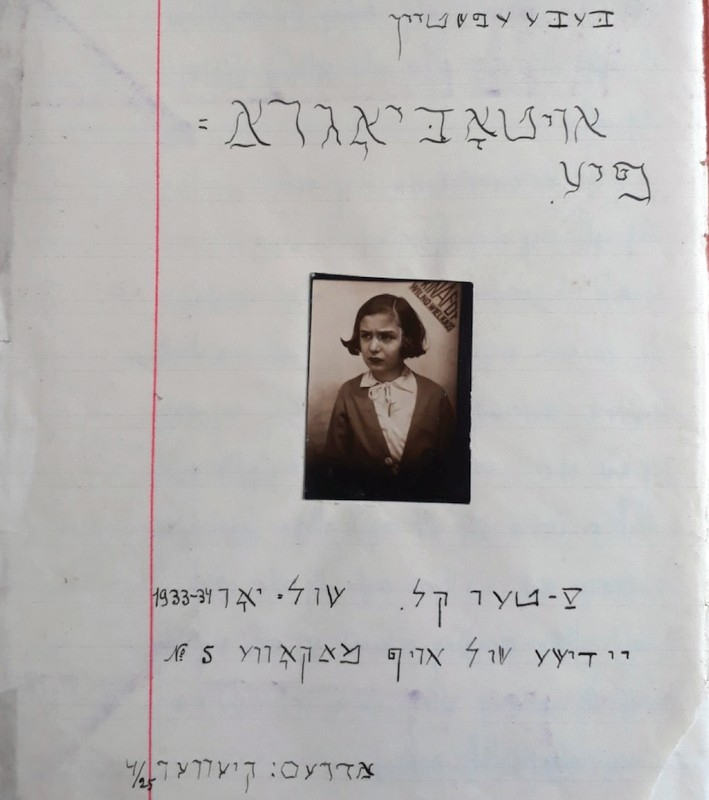 בּעבּע עפּשטיין
אויטאָבּיאָגראַ=
פיע.
WILNO WIELKA
V-טער קל. שול=יאָר 1933-34
יידישע שול אויף מאַקאָווע № 5
אַדרעס: קיעווער 4/25